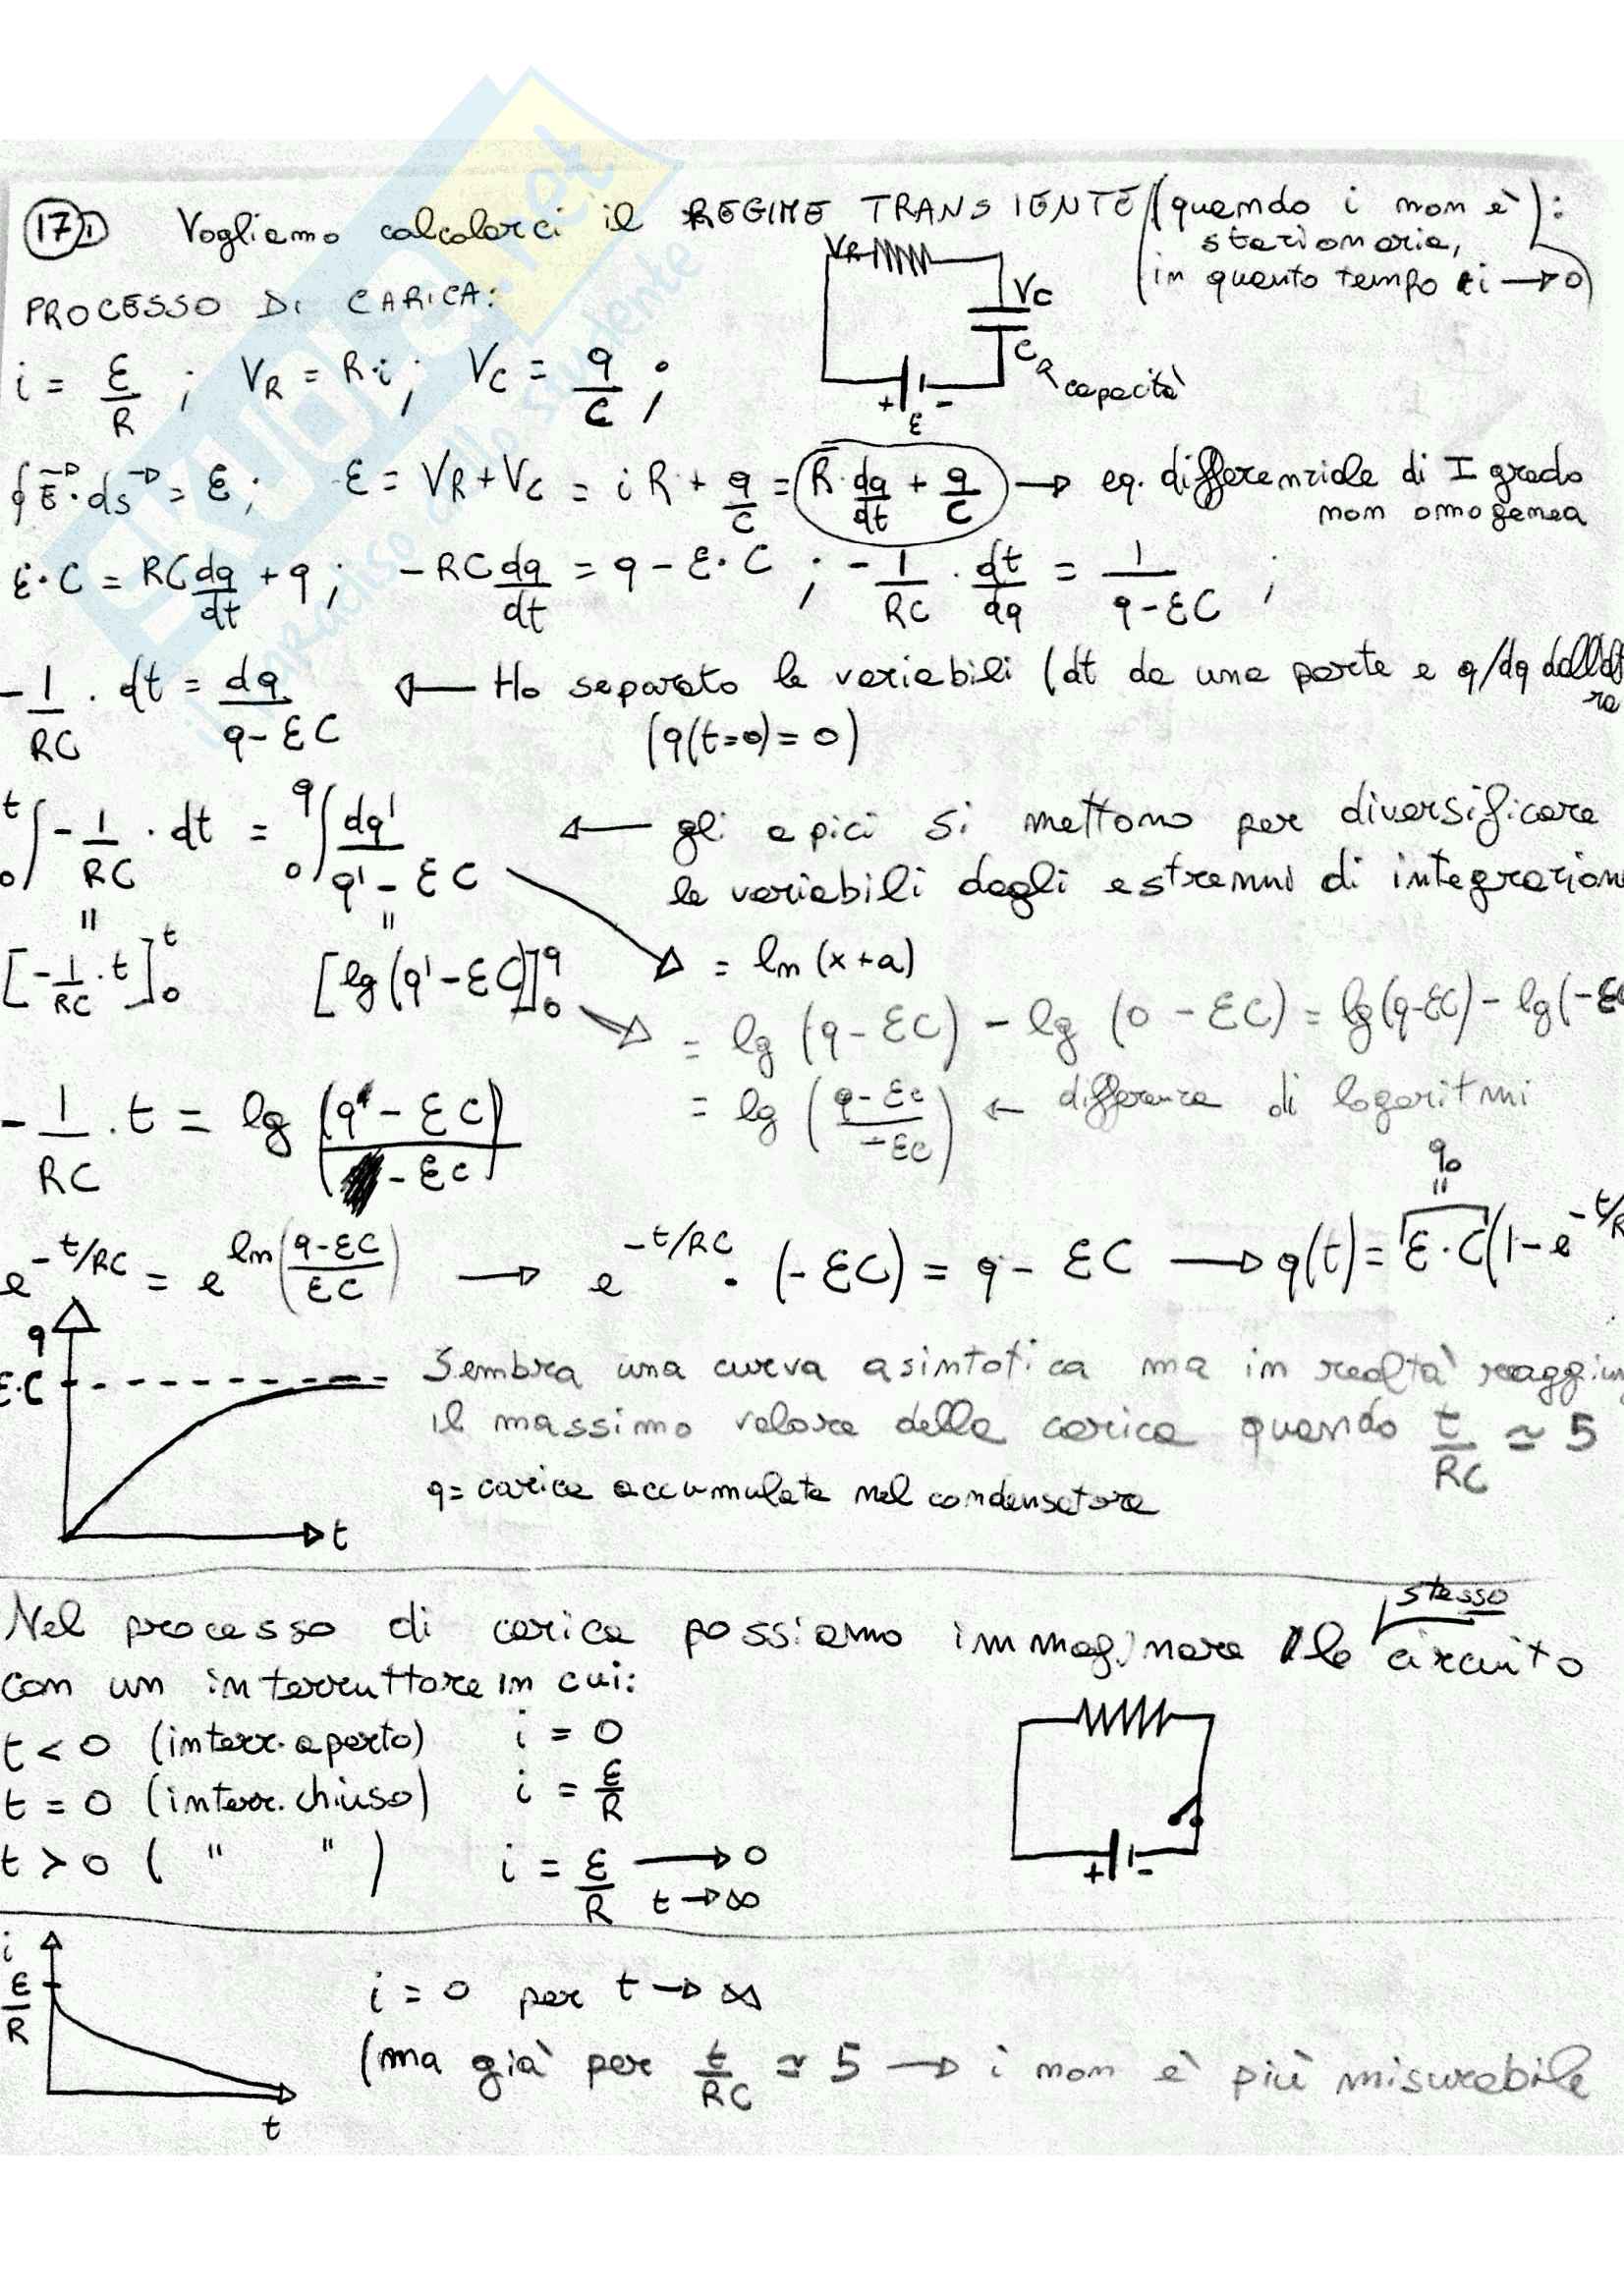 17 Vogliamo calcolarci il REGIME TRANSIENTE (quando i non è stazionaria, in quanto tempo i → 0):
PROCESSO DI CARICA:
VR
VC
C capacità
+ -
ε
i = ε/R ; VR = R·i ; VC = q/C ;
∮E·ds = ε ; ε = VR + VC = iR + q/C = R·dq/dt + q/C → eq. differenziale di I grado
non omogenea
ε·C = RC dq/dt + q ; -RC dq/dt = q - ε·C ; -1/RC · dt/dq = 1/(q-εC) ;
-1/RC · dt = dq/(q-εC) ← Ho separato le variabili (dt da una parte e q/dq
(q(t=0)=0)
∫₀ᵗ -1/RC · dt = ∫₀^q dq'/(q'-εC) ← gli apici si mettono per diversificare
le variabili dagli estremi di integrazion
= =
[-1/RC · t]₀ᵗ [lg(q'-εC)]₀^q = ln(x+a)
= lg(q-εC) - lg(0-εC) = lg(q-εC) - lg(-εC
= lg((q-εC)/(-εC)) ← differenza di logaritmi
-1/RC · t = lg((q-εC)/(-εC))
q₀
=
e^(-t/RC) = e^(ln((q-εC)/εC)) → e^(-t/RC) · (-εC) = q - εC → q(t) = ε·C(1-e^(-t/R
q
ε·C
t
Sembra una curva asintotica ma in realtà raggiun
il massimo valore della carica quando t/RC ≃ 5
q = carica accumulata nel condensatore
Nel processo di carica possiamo immaginare lo stesso circuito
con un interruttore in cui:
t < 0 (interr. aperto) i = 0
t = 0 (interr. chiuso) i = ε/R
t > 0 ( " " ) i = ε/R → 0
t → ∞
+ -
i
ε/R
t
i = 0 per t → ∞
(ma già per t/RC ≃ 5 → i non è più misurabile